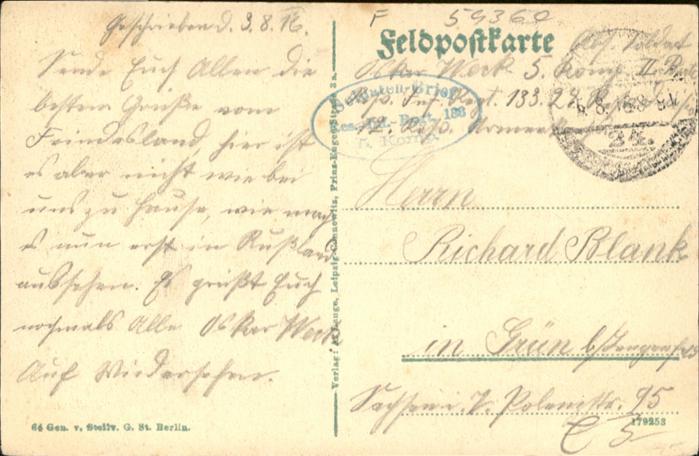 Geschrieben d. 3.8.16.
Sende Euch Allen die
besten Grüße vom
Feindesland, hier ist
es aber nicht wie bei
uns zu Hause, wie mag
es nun erst in Rußland
aussehen. Es grüßt Euch
nochmals Alle Oskar Werk
Auf Wiedersehen.
64 Gen. v. Stellv. G. St. Berlin.
F 59362
Feldpostkarte
Abs. Soldat
Oskar Werk 5. Komp. II.
Inf. Regt. 133. 24.
Soldaten-Brief
Res.-Inf.-Regt. 133
5. Komp.
24.
Herrn
Richard Blank
in Grün
Sachsen
179253